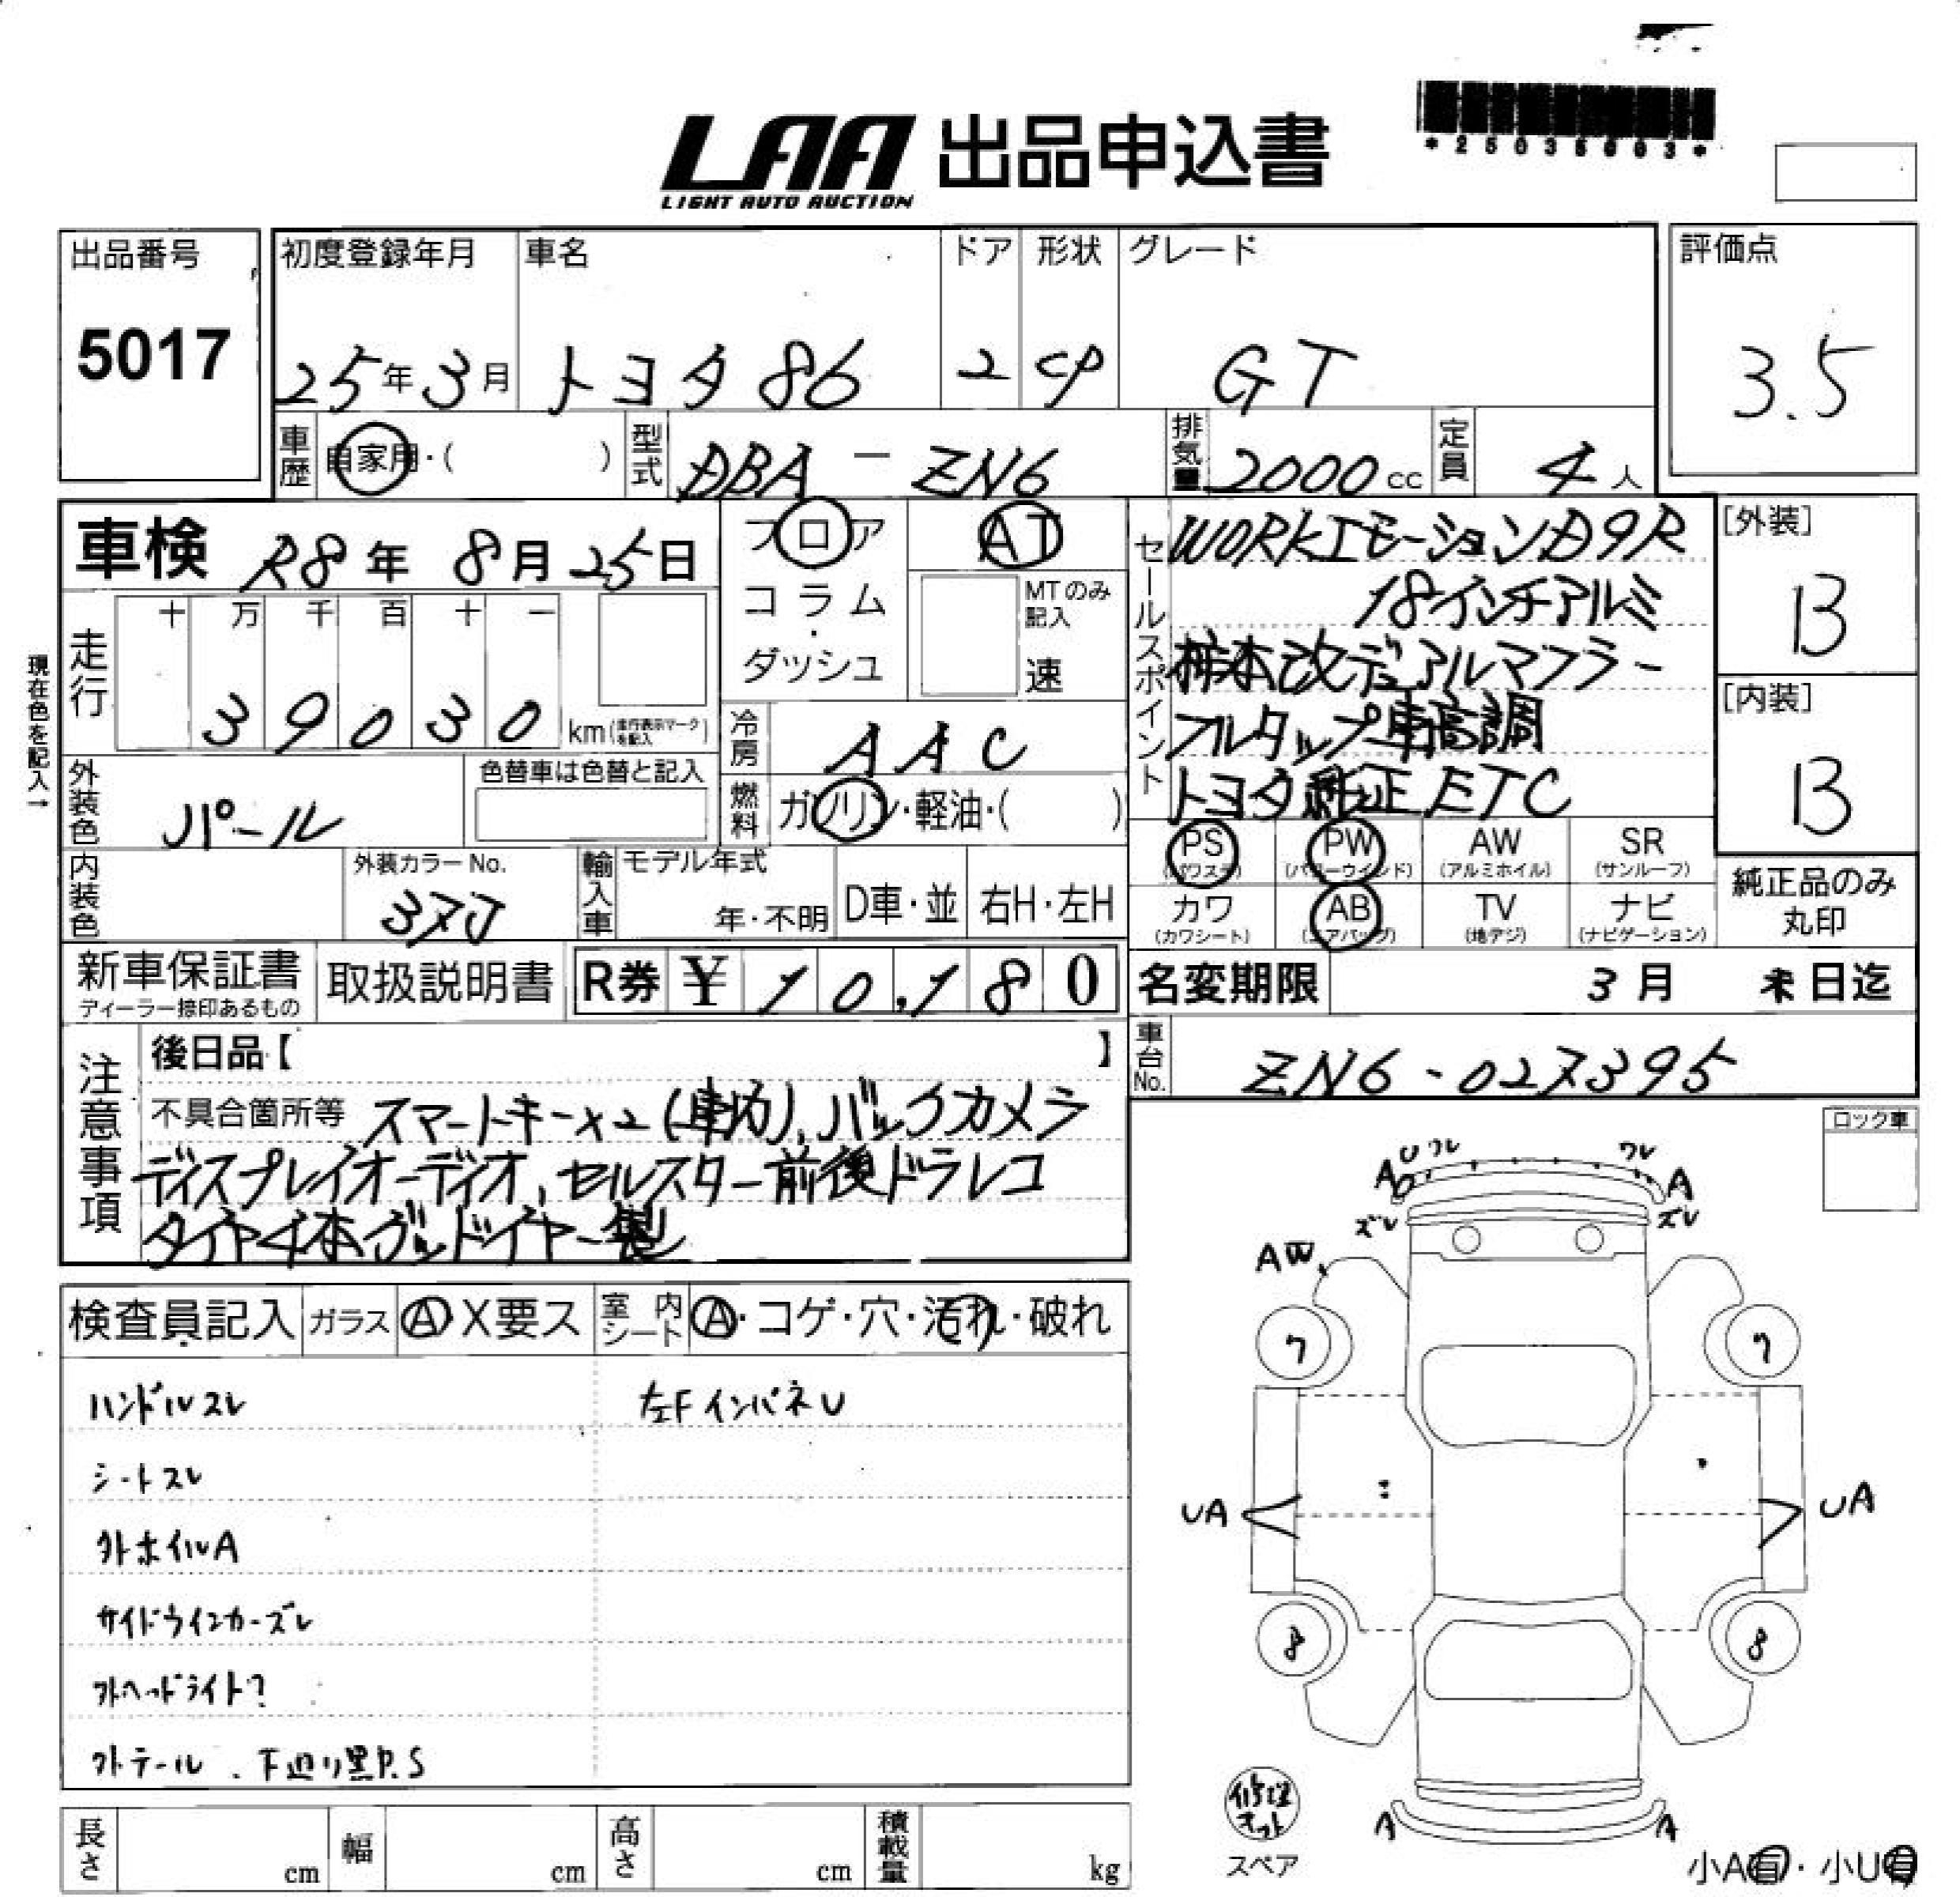 *25035003*
LAA 出品申込書
LIGHT AUTO AUCTION
出品番号
5017
初度登録年月
25年3月
車名
トヨタ86
ドア
2
形状
CP
グレード
GT
評価点
3.5
車歴
自家用・( )
型式
DBA - ZN6
排気量
2000cc
定員
4人
車検 R8年 8月25日
フロア
コラム
・
ダッシュ
AT
MTのみ記入
速
現在色を記入→
走行
十 万 千 百 十 一
3 9 0 3 0
km(走行表示マークを記入)
冷房
AAC
燃料
ガソリン・軽油・( )
外装色
パール
色替車は色替と記入
内装色
外装カラーNo.
37J
輸入車
モデル年式
年・不明
D車・並
右H・左H
セールスポイント
WORKエモーションD9R
18インチアルミ
柿本改デュアルマフラー
フルタップ車高調
トヨタ純正ETC
[外装]
B
[内装]
B
PS
(パワステ)
PW
(パワーウインド)
AW
(アルミホイル)
SR
(サンルーフ)
カワ
(カワシート)
AB
(エアバッグ)
TV
(地デジ)
ナビ
(ナビゲーション)
純正品のみ
丸印
新車保証書
ディーラー捺印あるもの
取扱説明書
R券 ¥ 10,180
名変期限
3月 末日迄
車台No.
ZN6-027395
注意事項
後日品【 】
不具合箇所等 スマートキー×2(車内)、バックカメラ
ディスプレイオーディオ、セルスター前後ドラレコ
タイヤ4本グッドイヤー製
ロック車
検査員記入
ガラス
A X要ス
室内シート
A・コゲ・穴・汚れ・破れ
ハンドルスレ
左FインパネU
シートスレ
外ホイルA
サイドウインカーズレ
外ヘッドライト?
外テール . 下廻り黒P.S
A U ワレ
ワレ
A
ズレ
ズレ
AW
7
7
UA
UA
8
8
修理キット
スペア
A
A
小A有・小U有
長さ
cm
幅
cm
高さ
cm
積載量
kg